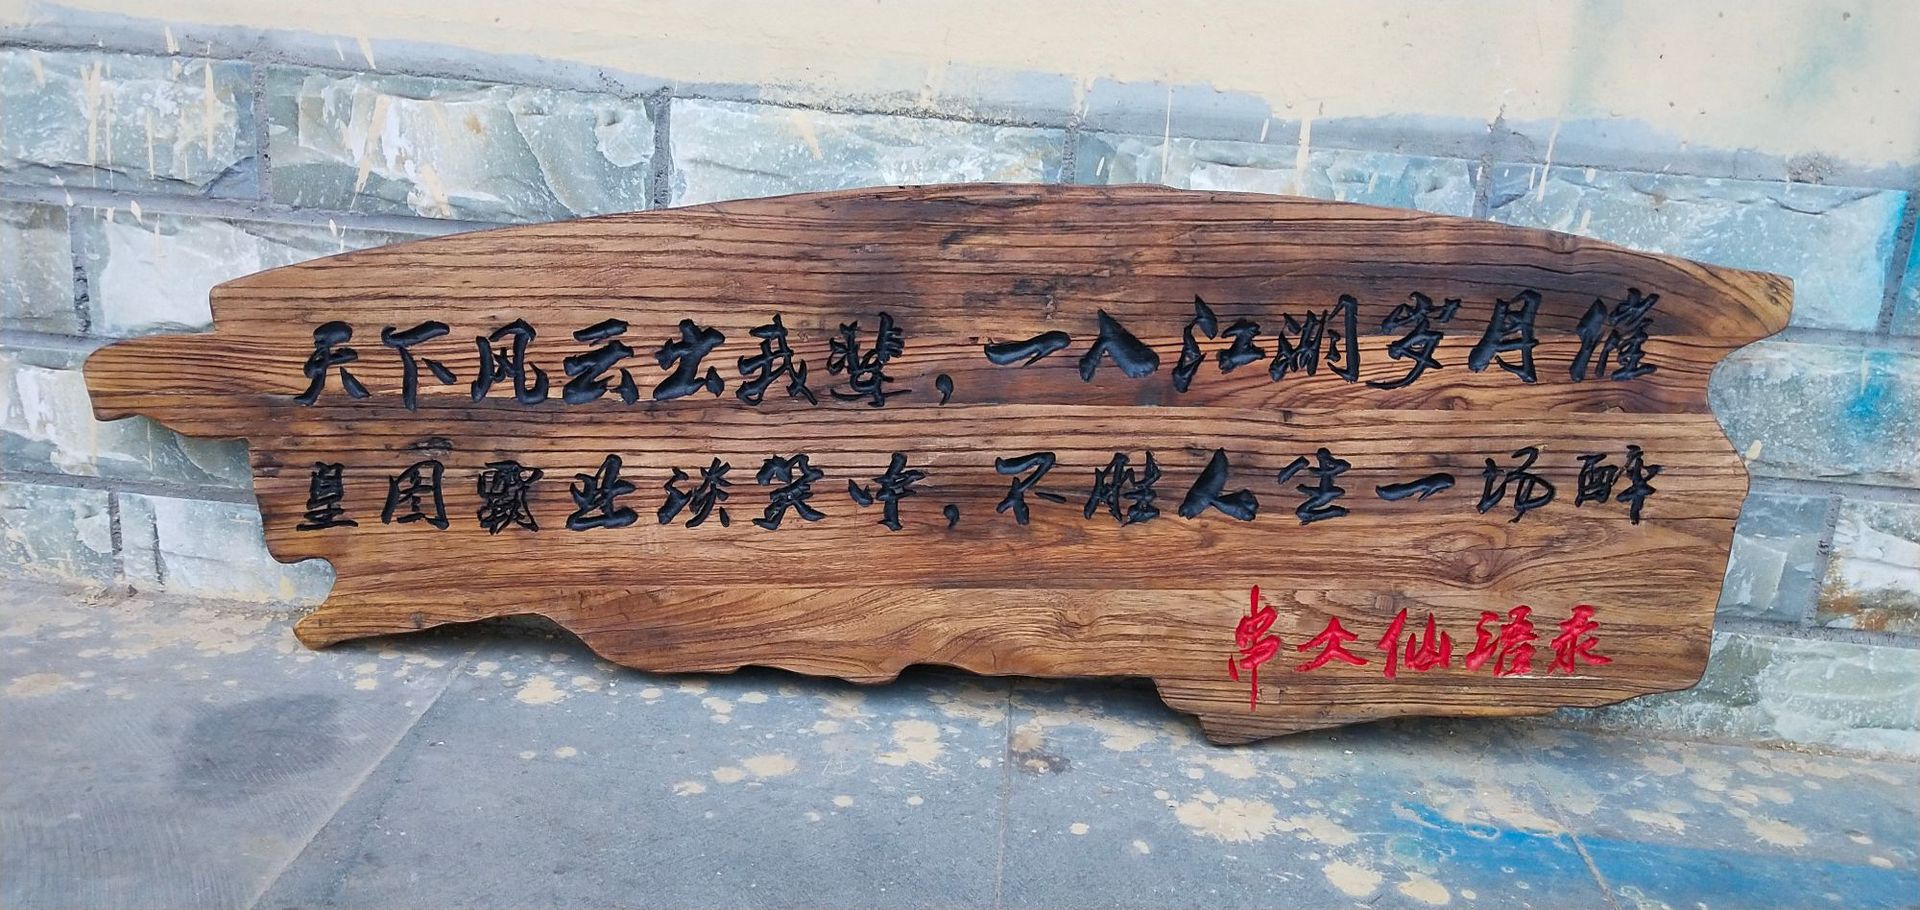 天下风云出我辈，一入江湖岁月催
皇图霸业淡笑中，不胜人生一场醉
串大仙语录